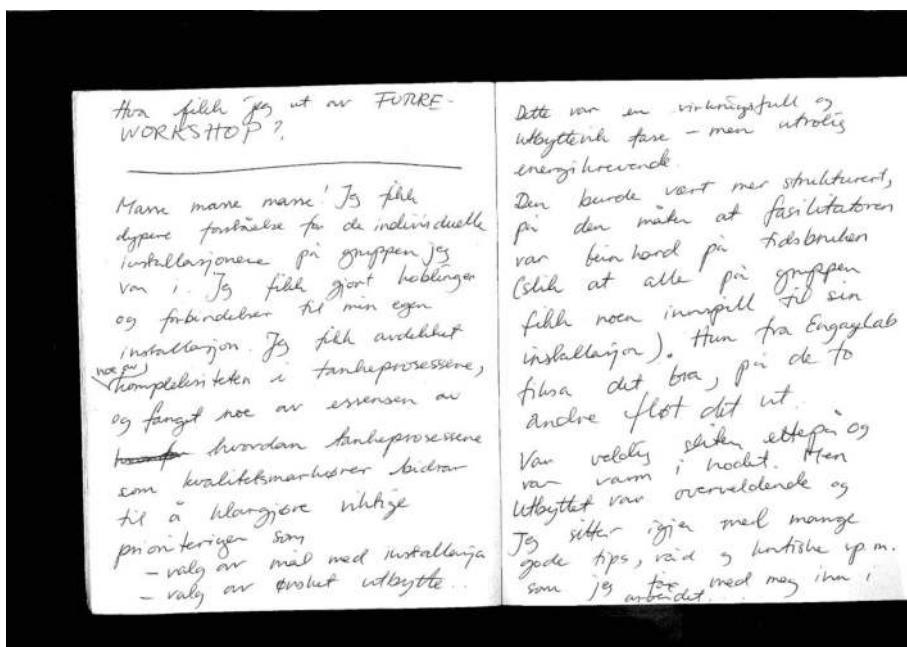 Hva fikk jeg ut av FUTURE-
WORKSHOP?
Masse masse masse! Jeg fikk
dypere forståelse for de individuelle
installasjonene på gruppen jeg
var i. Jeg fikk gjort koblinger
og forbindelser til min egen
installasjon. Jeg fikk avdekket
noe av
kompleksiteten i tankeprosessene,
og fanget noe av essensen av
hvordan tankeprosessene
som kvalitetsmarkører bidrar
til å klargjøre viktige
prioriteringer som
- valg av mål med installasjon
- valg av ønsket utbytte...
Dette var en virkningsfull og
utbytterik fase - men utrolig
energikrevende.
Den burde vært mer strukturert,
på den måten at fasilitatoren
var beinhard på tidsbruken
(slik at alle på gruppen
fikk noen innspill til sin
installasjon). Hun fra EngageLab
fiksa det bra, på de to
andre fløt det ut.
Var veldig sliten etterpå og
var varm i hodet. Men
utbyttet var overveldende og
Jeg sitter igjen med mange
gode tips, råd og kritiske sp.m.
som jeg tar med meg inn i
arbeidet...